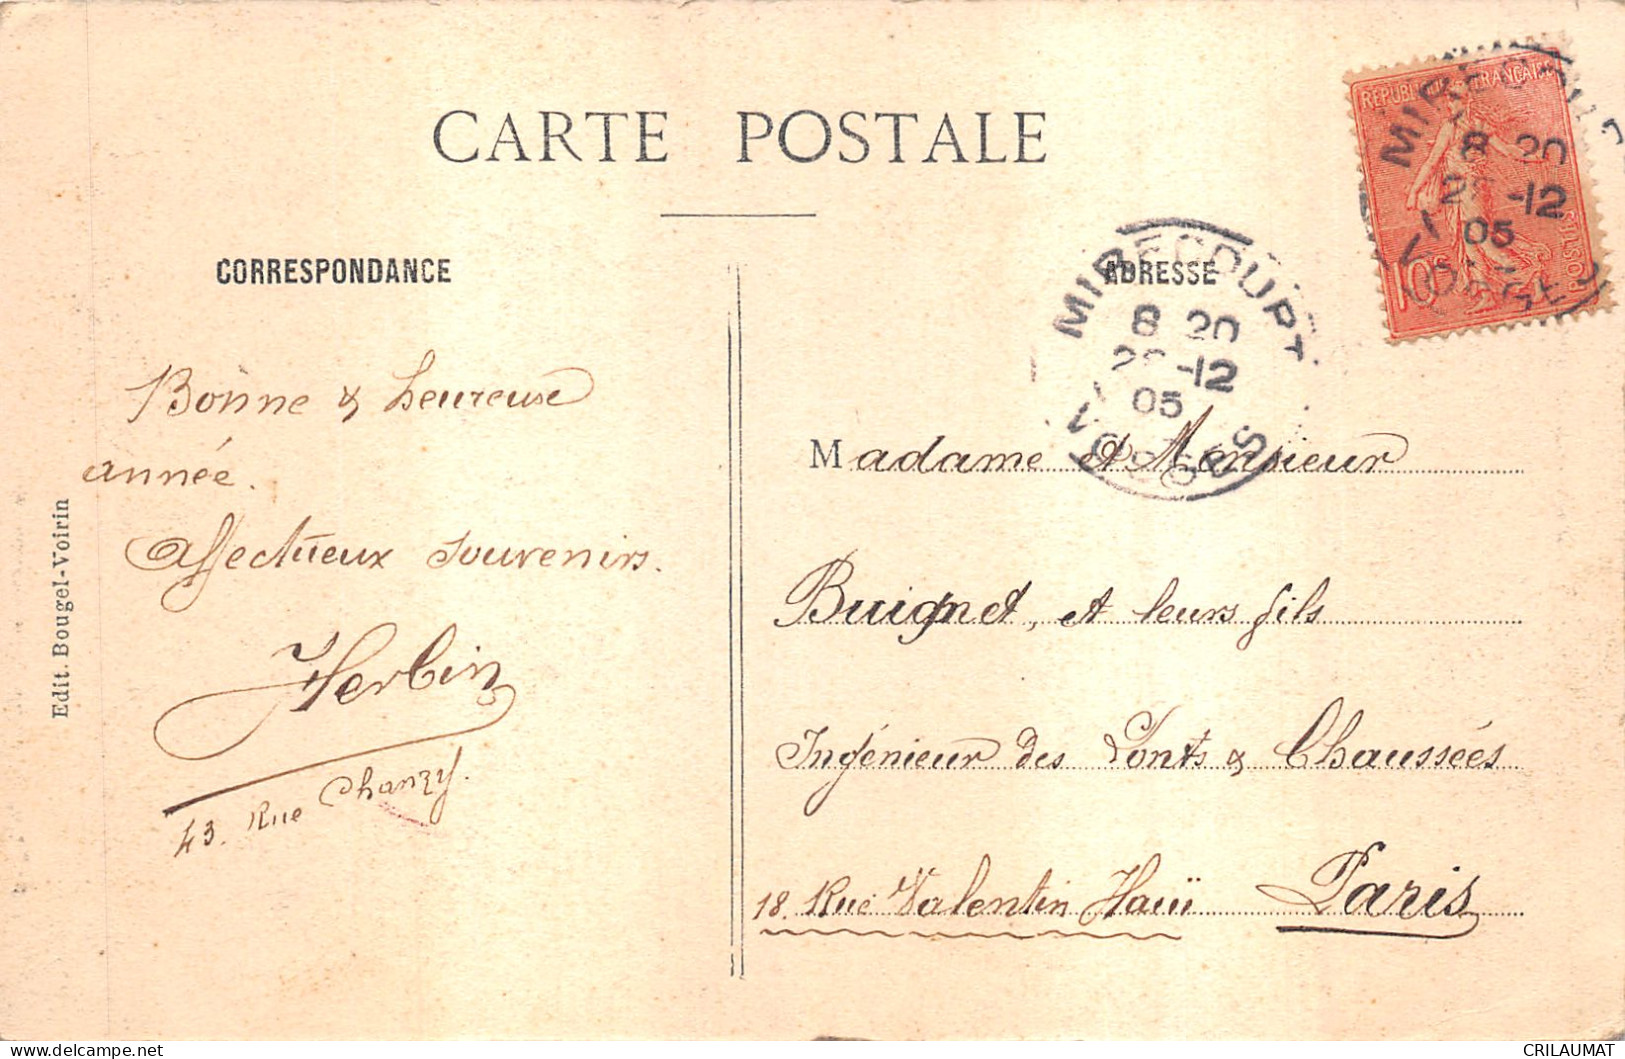 CARTE POSTALE
CORRESPONDANCE
ADRESSE
REPUBLIQUE FRANÇAISE
10
MIRECOURT
8 20
-12
05
VOSGES
MIRECOURT
8 20
-12
05
VOSGES
Bonne & heureuse
année.
Affectueux souvenirs.
Herbin
43. Rue Chanzy.
Edit. Bougel-Voirin
Madame et Monsieur
Buignet, et leurs fils
Ingénieur des Ponts & Chaussées
18. Rue Valentin Haüi Paris
CRILAUMAT